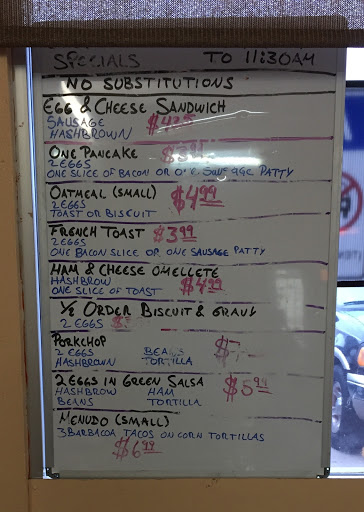 SPECIALS TO 11:30AM
NO SUBSTITUTIONS
EGG & CHEESE SANDWICH
SAUSAGE
HASHBROWN
ONE PANCAKE
2 EGGS
ONE SLICE OF BACON OR ONE SAUSAGE PATTY
OATMEAL (SMALL) $4.99
2 EGGS
TOAST OR BISCUIT
FRENCH TOAST $3.99
2 EGGS
ONE BACON SLICE OR ONE SAUSAGE PATTY
HAM & CHEESE OMELLETE
HASHBROW $4.99
ONE SLICE OF TOAST
1/2 ORDER BISCUIT & GRAVY
2 EGGS
PORKCHOP
2 EGGS BEANS
HASHBROWN TORTILLA
2 EGGS IN GREEN SALSA $5.99
HASHBROW HAM
BEANS TORTILLA
MENUDO (SMALL)
3 BARBACOA TACOS ON CORN TORTILLAS
$6.99